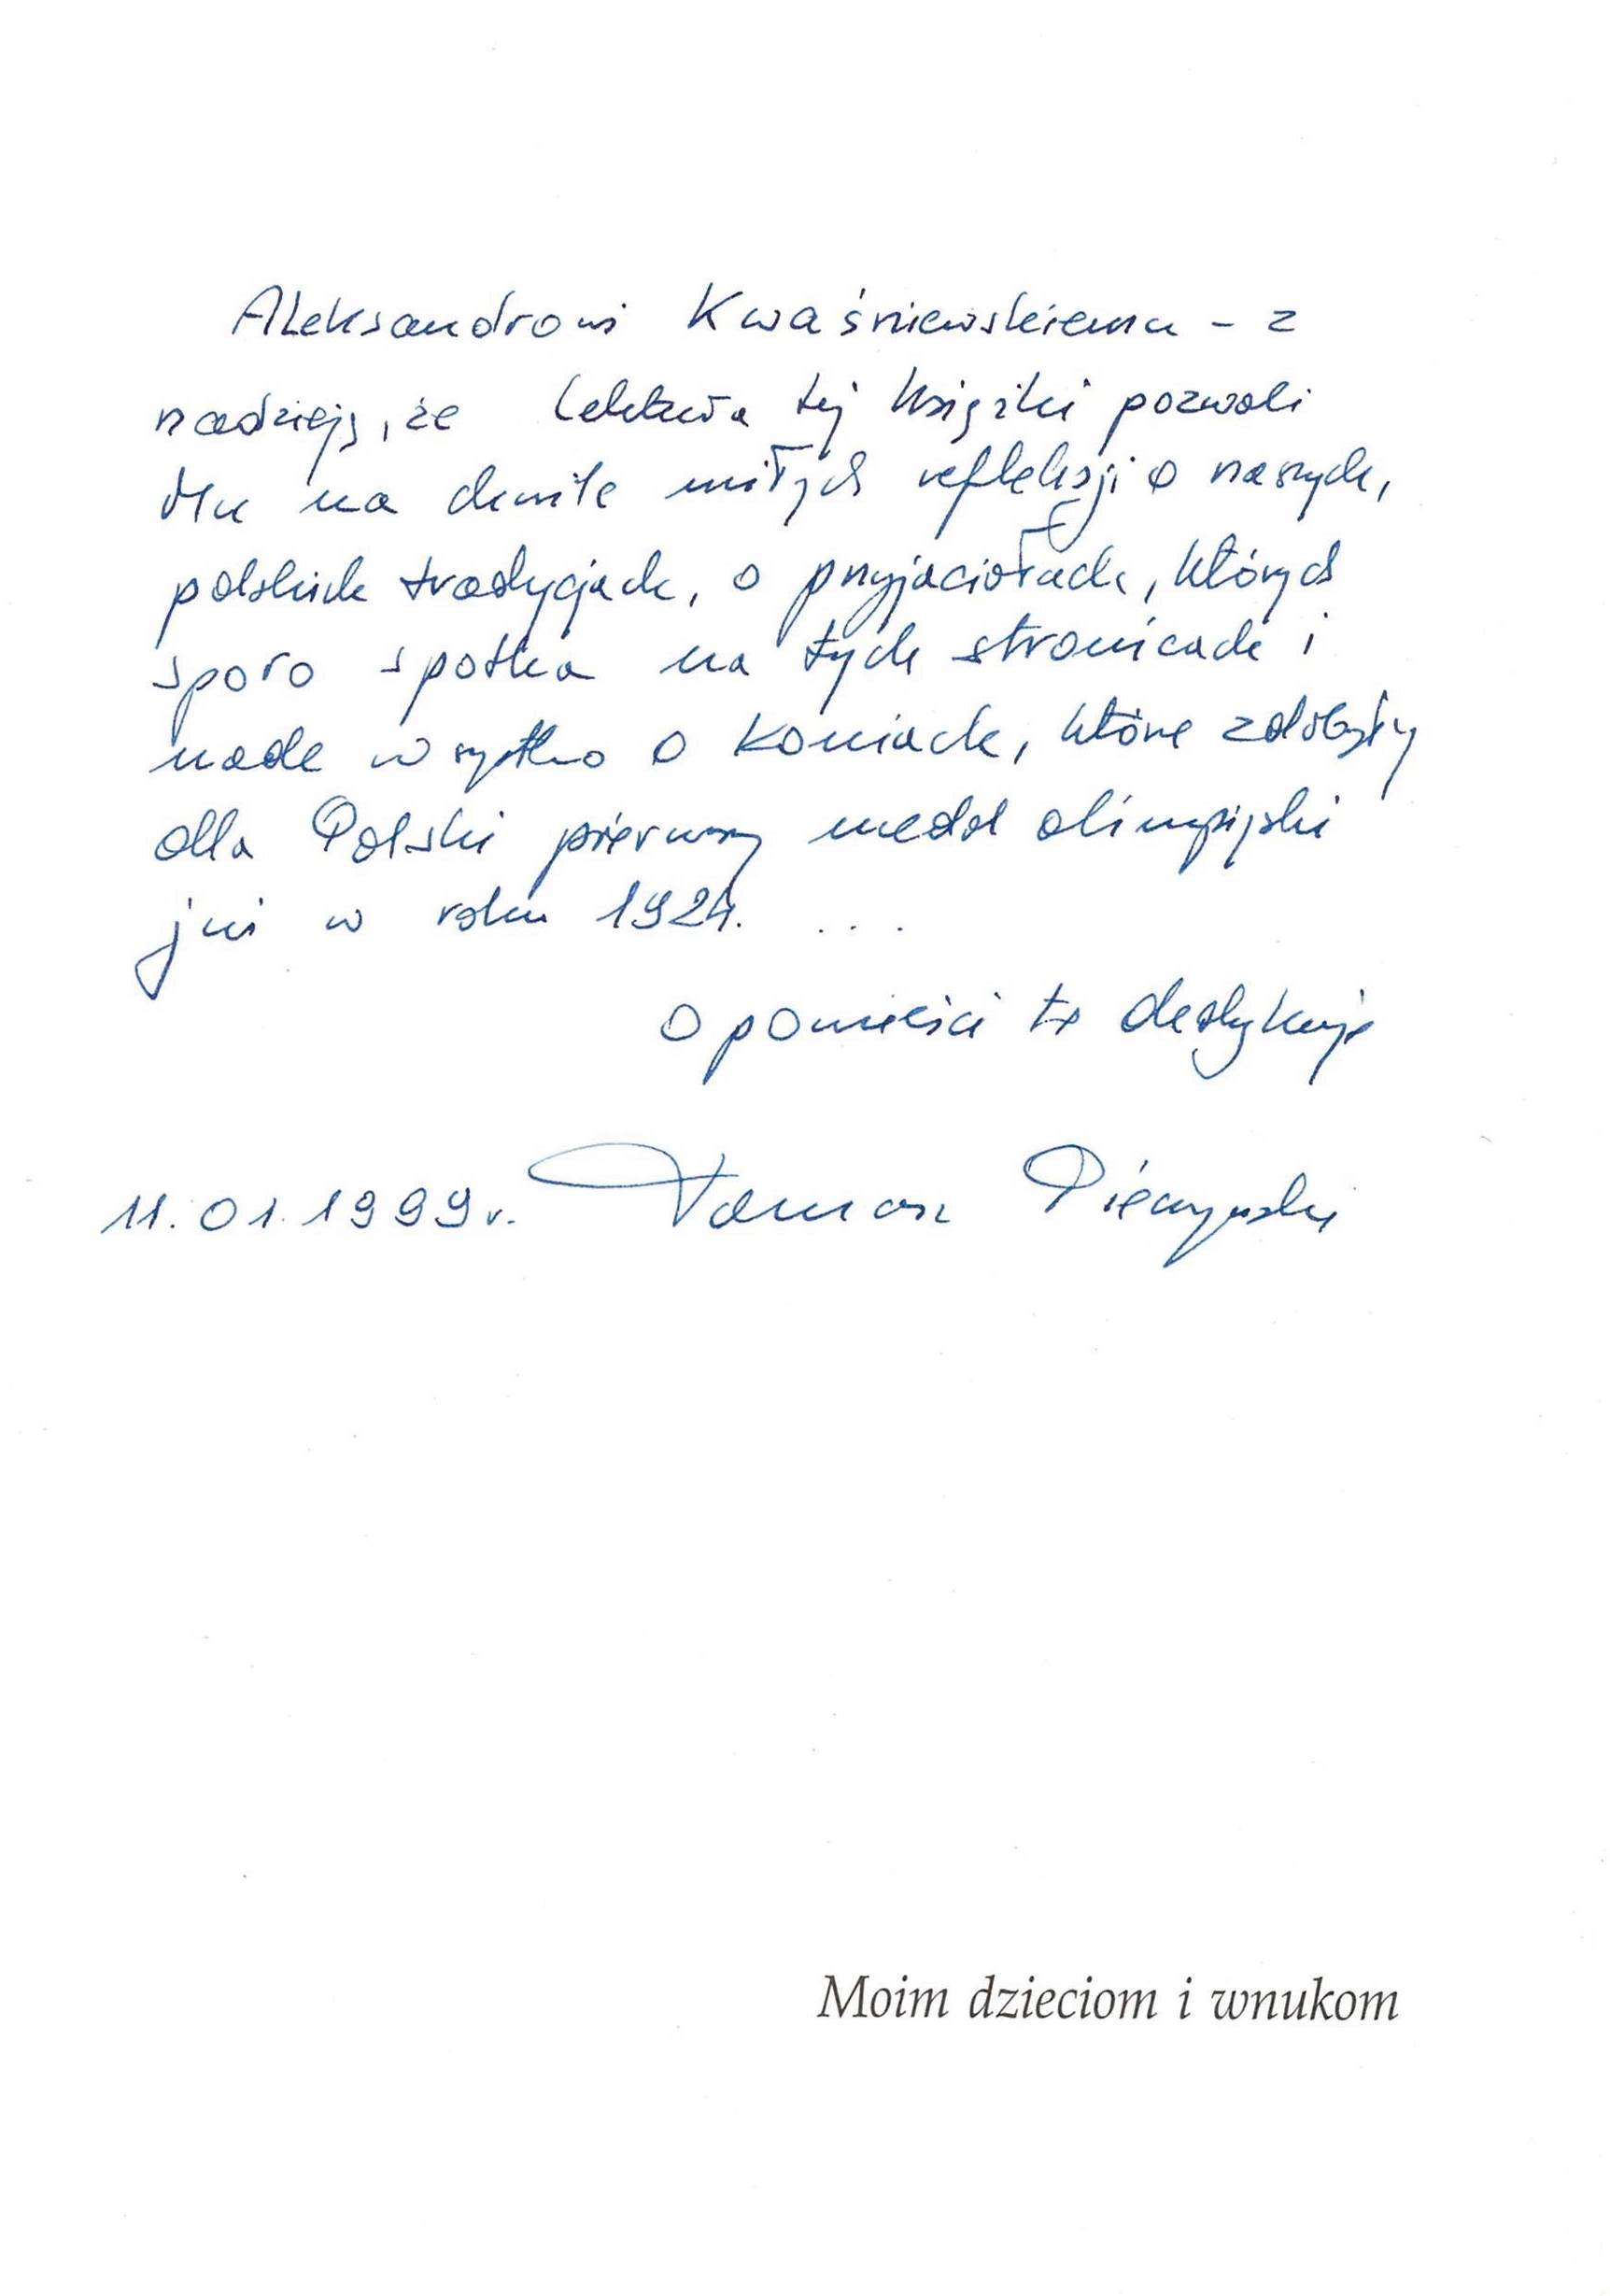 Aleksandrowi Kwaśniewskiemu – z
nadzieją, że lektura tej książki pozwoli
Mu na chwile miłych refleksji o naszych,
polskich tradycjach, o przyjaciołach, których
sporo spotka na tych stronicach i
nade wszystko o koniach, które zdobyły
dla Polski pierwszy medal olimpijski
już w roku 1924. ...
opowieści te dedykuje
11.01.1999 r. Tomasz
Moim dzieciom i wnukom